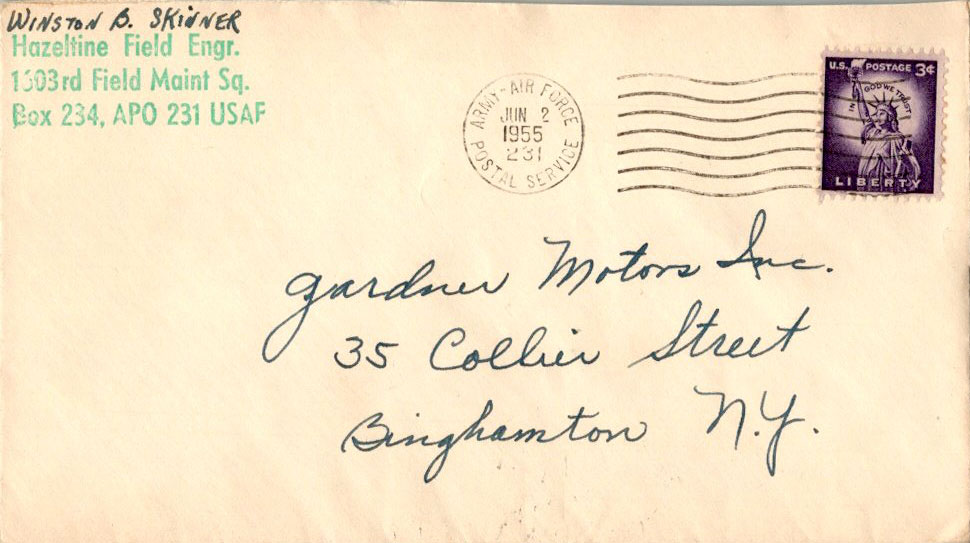 WINSTON B. SKINNER
Hazeltine Field Engr.
1603rd Field Maint Sq.
Box 234, APO 231 USAF
ARMY-AIR FORCE
JUN 2
1955
231
POSTAL SERVICE
U.S. POSTAGE 3¢
IN GOD WE TRUST
LIBERTY
Gardner Motors Inc.
35 Collier Street
Binghamton N.Y.